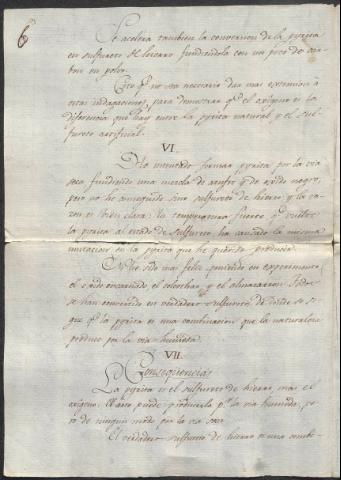 6
Se acelera tambien la conversion de la pyrita
en sulfureto de hierro fundiendola con un poco de car-
bon en polvo.
Creo q.e no sea necesario dar mas extension á
estas indagaciones para demostrar q.e el oxigeno es la
diferencia que hay entre la pyrita natural y el sul-
fureto artificial.
VI.
He intentado formar pyrita por la via
seca fundiendo una mezcla de azufre y de oxido negro,
pero no he conseguido sino sulfureto de hierro y la ra-
zon es bien clara: la temperatura fuerte q.e reduce
la pyrita al estado de sulfureto ha causado la misma
mutacion en la pyrita que he querido producir.
No he sido mas feliz poniendo en experimento
el oxido encarnado el colcothar y el almazarron. Todos
se han convertido en verdadero sulfureto de donde se si-
gue q.e la pyrita es una combinacion que la naturaleza
produce por la via humeda.
VII.
Consequencias
La pyrita es el sulfureto de hierro, mas el
oxigeno. El arte puede producirla p.r la via humeda, pe-
ro de ningun modo por la via seca.
El verdadero sulfureto de hierro es una combi-